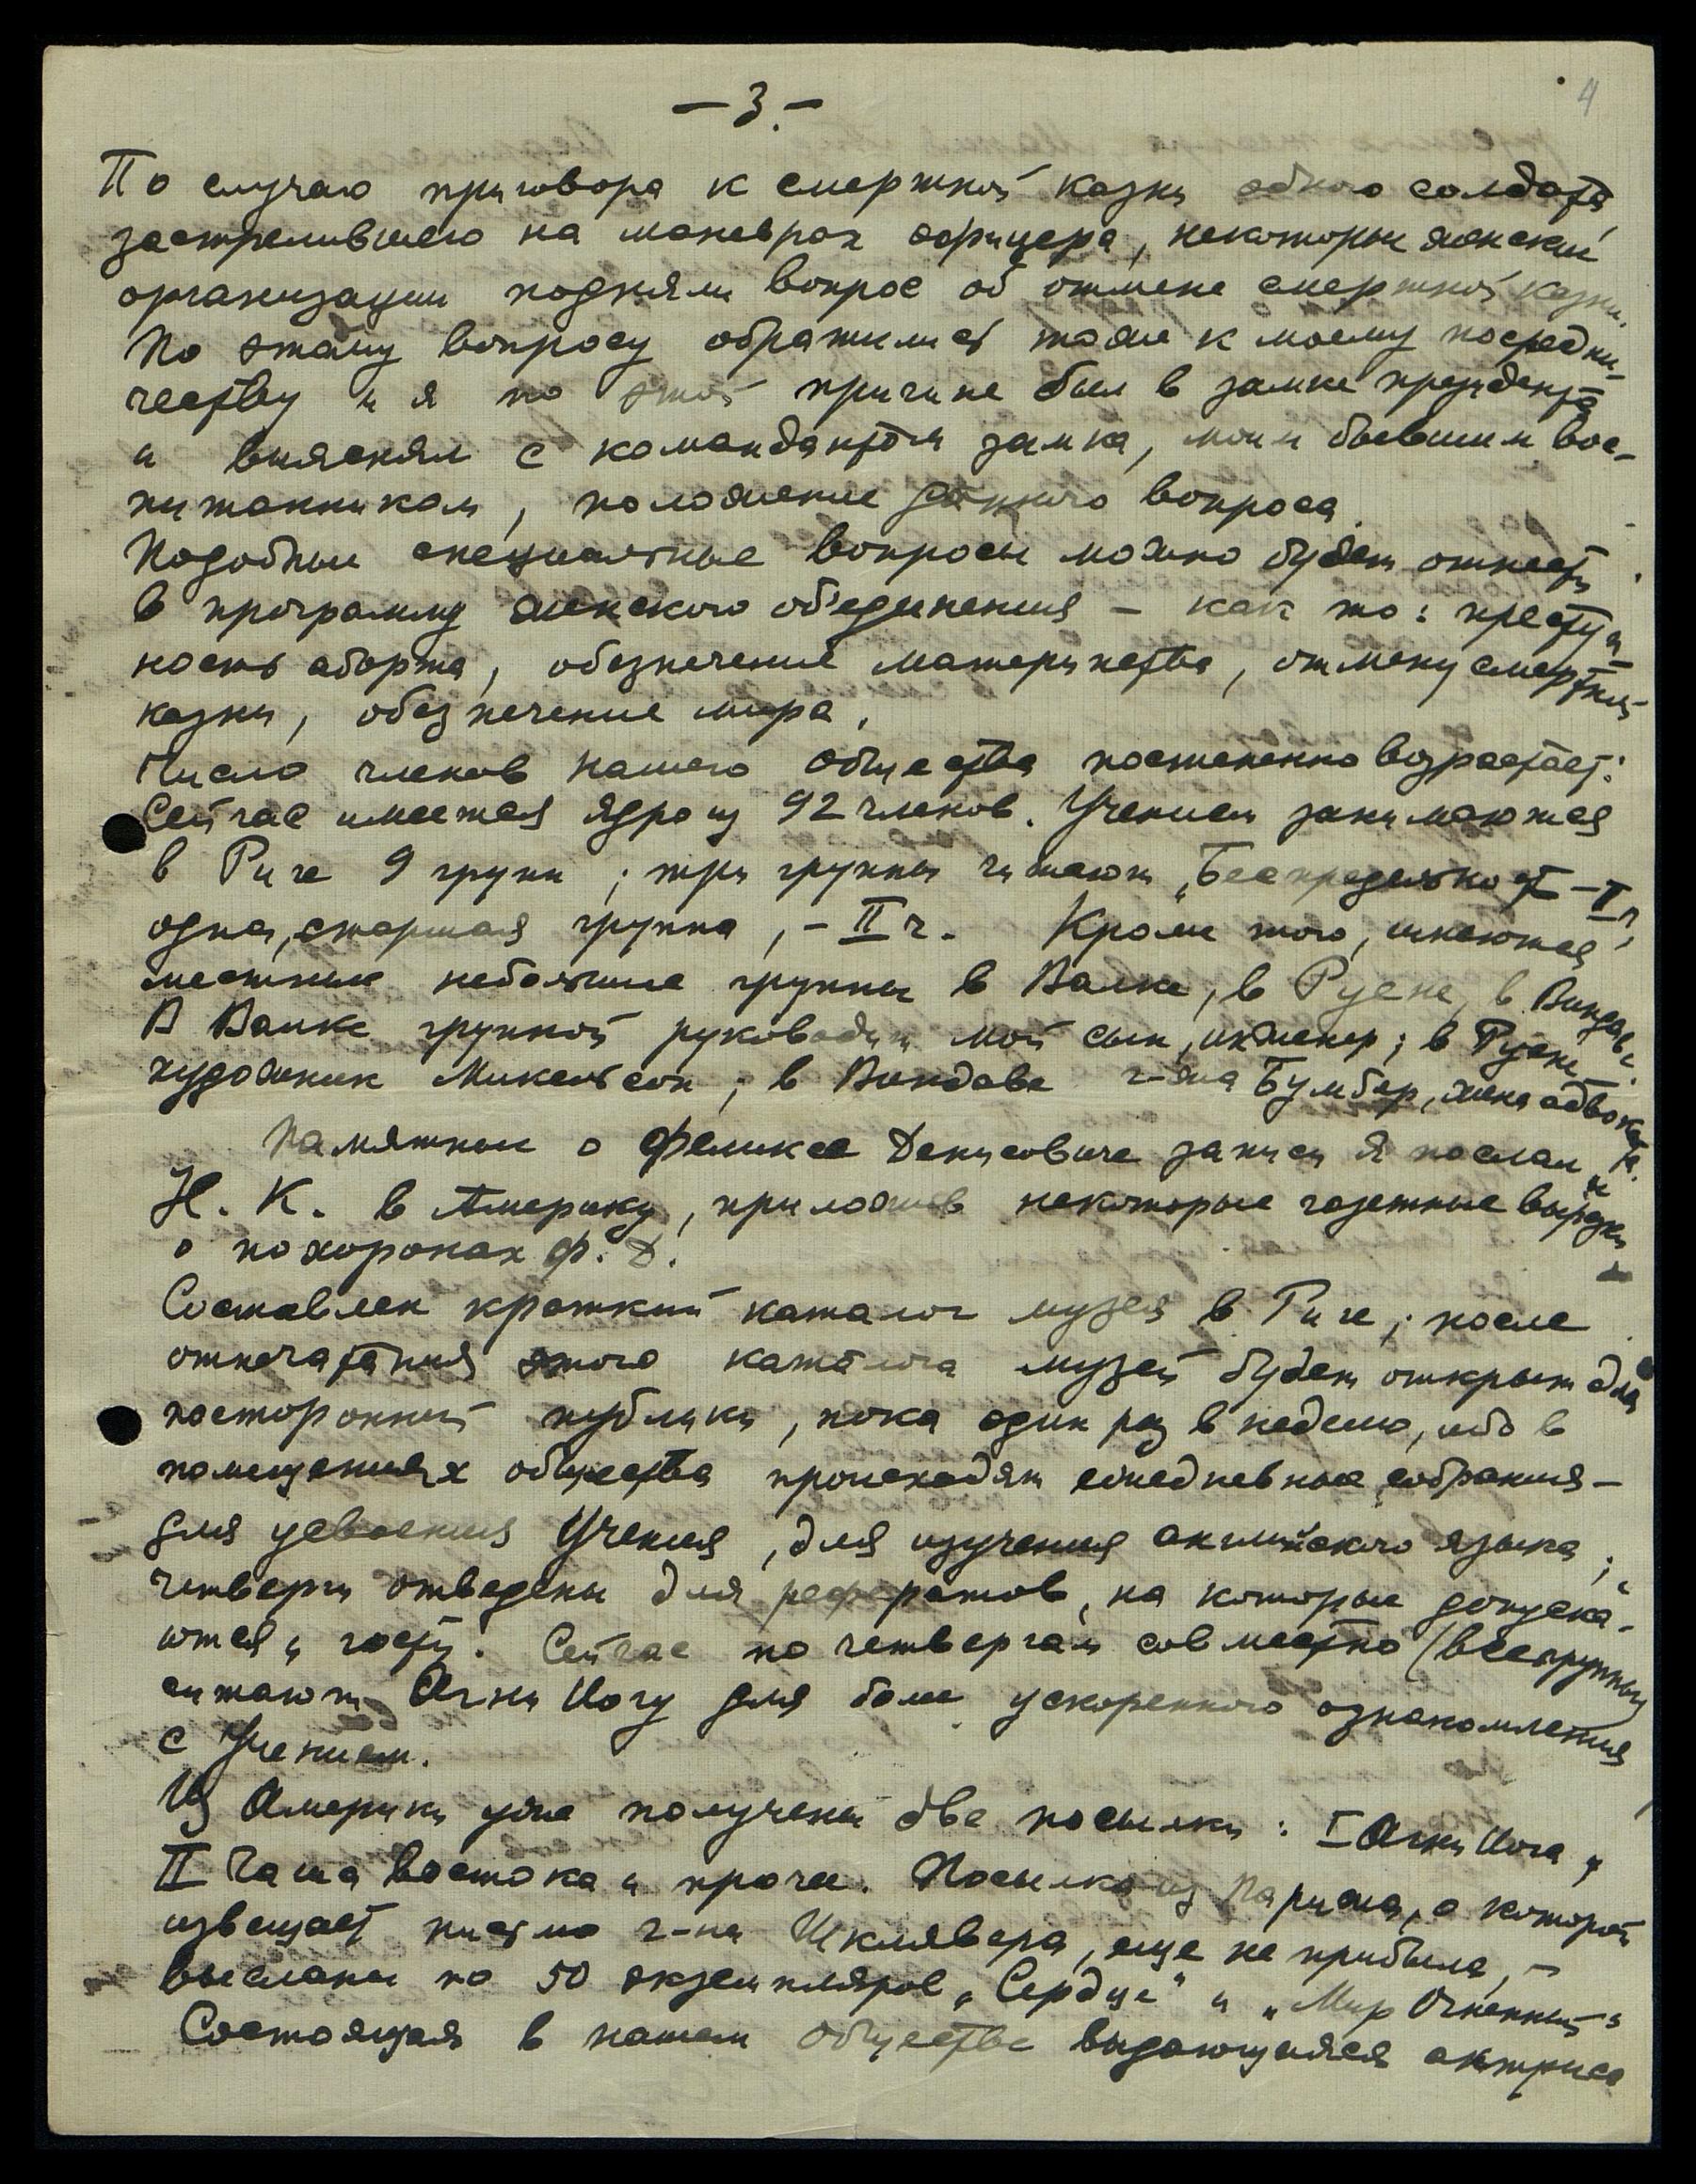 4
– 3. –
По случаю приговора к смертной казни одного солдата,
застрелившего на маневрах офицера, некоторые женские
организации подняли вопрос об отмене смертной казни.
По этому вопросу обратились также к моему посредни-
честву и я по этой причине был в замке президента
и выяснял с комендантом замка, моим бывшим вос-
питанником, положение данного вопроса.
Подобные специальные вопросы можно будет отнести
в программу женского об'единения – как то: преступ-
ность аборта, обезпечение материнства, отмену смертной
казни, обезпечение мира.
Число членов нашего общества постепенно возрастает:
Сейчас имеется ядро из 92 членов. Учением занимаются
в Риге 9 групп; три группы читают „Беспредельность – I ч,
одна, старшая группа, – II ч. Кроме того, имеются
местные небольшие группы в Валке, в Руене, в Виндаве.
В Валке группой руководит мой сын, инженер; в Руене
художник Микельсон; в Виндаве г-жа Бумбер, жена адвоката.
Памятные о Феликсе Денисовиче записи я послал и
Н. К. в Америку, приложив некоторые газетные вырезки
о похоронах Ф. Д.
Составлен краткий каталог музея в Риге; после
отпечатания этого каталога музей будет открыт для
посторонней публики, пока один раз в неделю, ибо в
помещениях общества происходят ежедневные собрания –
для усвоения Учения, для изучения английского языка;
четверги отведены для рефератов, на которые допуска-
ются и гости. Сейчас по четвергам совместно (все группы)
читают Агни Йогу для более ускоренного ознакомления
с Учением.
Из Америки уже получены две посылки: I Агни Йога и
II Чаша Востока и прочее. Посылка из Парижа, о которой
извещает письмо г-на Шклявера, еще не прибыла, –
высланы по 50 экземпляров „Сердце" и „Мир Огненный"
Состоящая в нашем обществе выдающаяся актриса